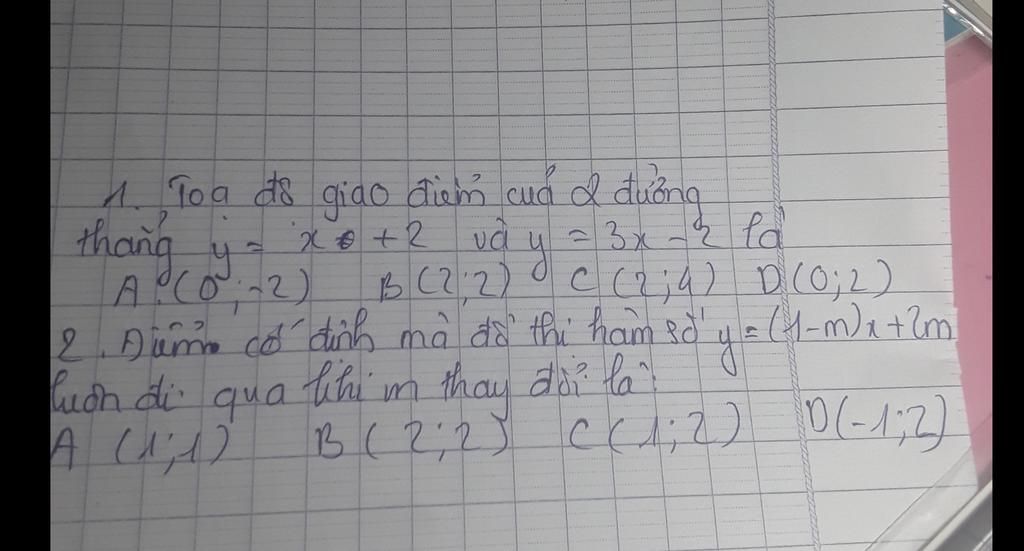 1. Toạ độ giao điểm của 2 đường
thẳng y = x + 2 và y = 3x - 2 là
A (0; -2) B (2; 2) C (2; 4) D (0; 2)
2. Điểm cố định mà đồ thị hàm số y = (1-m)x + 2m
luôn đi qua khi m thay đổi là:
A (1; 1) B (2; 2) C (1; 2) D (-1; 2)